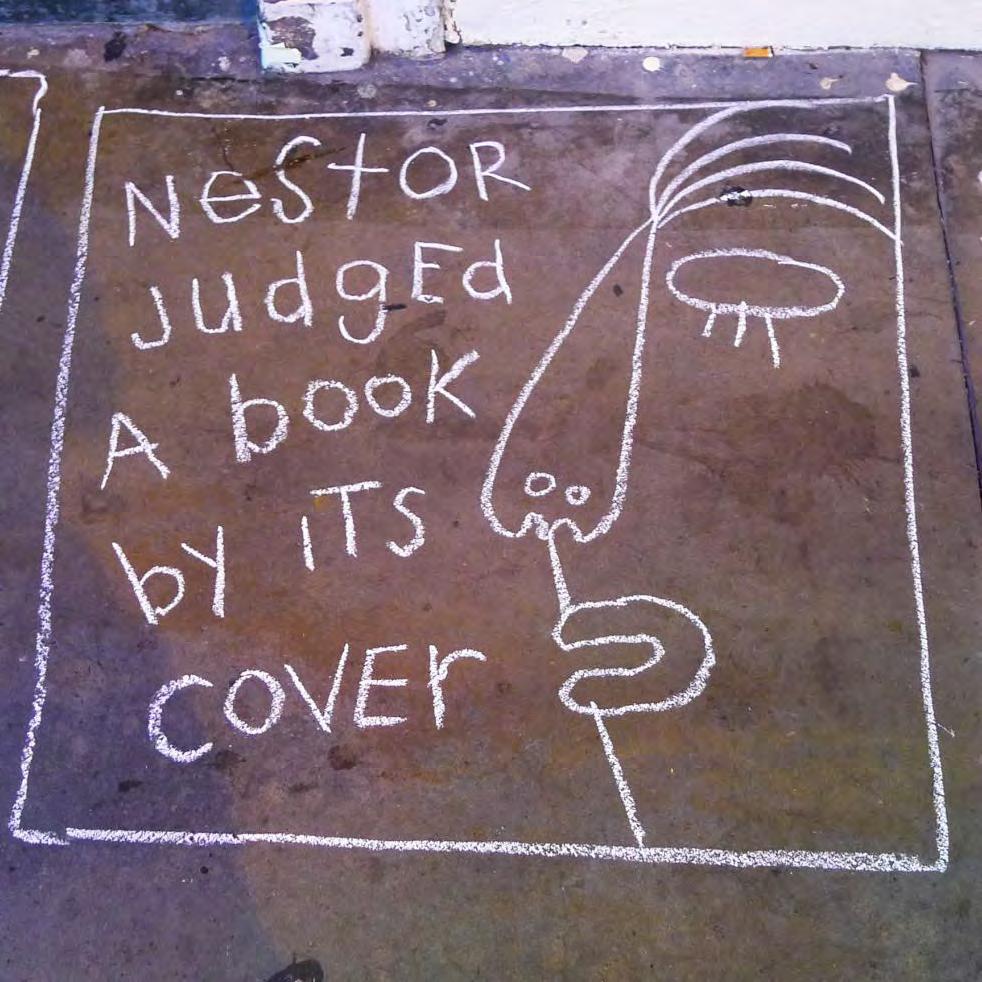 NeSTOR
JudgEd
A booK
by iTS
COVEr